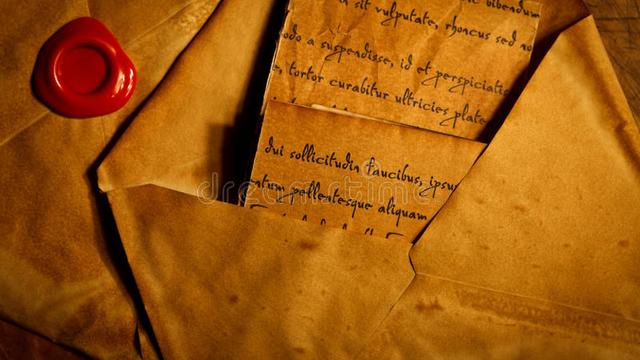 bibendum
sit vulputate, rhoncus sed no
odo a suspendisse, id et perspiciatis
, tortor curabitur ultricies plate
dui sollicitudin faucibus, ipsu
entum pellentesque aliquam
dreamstime